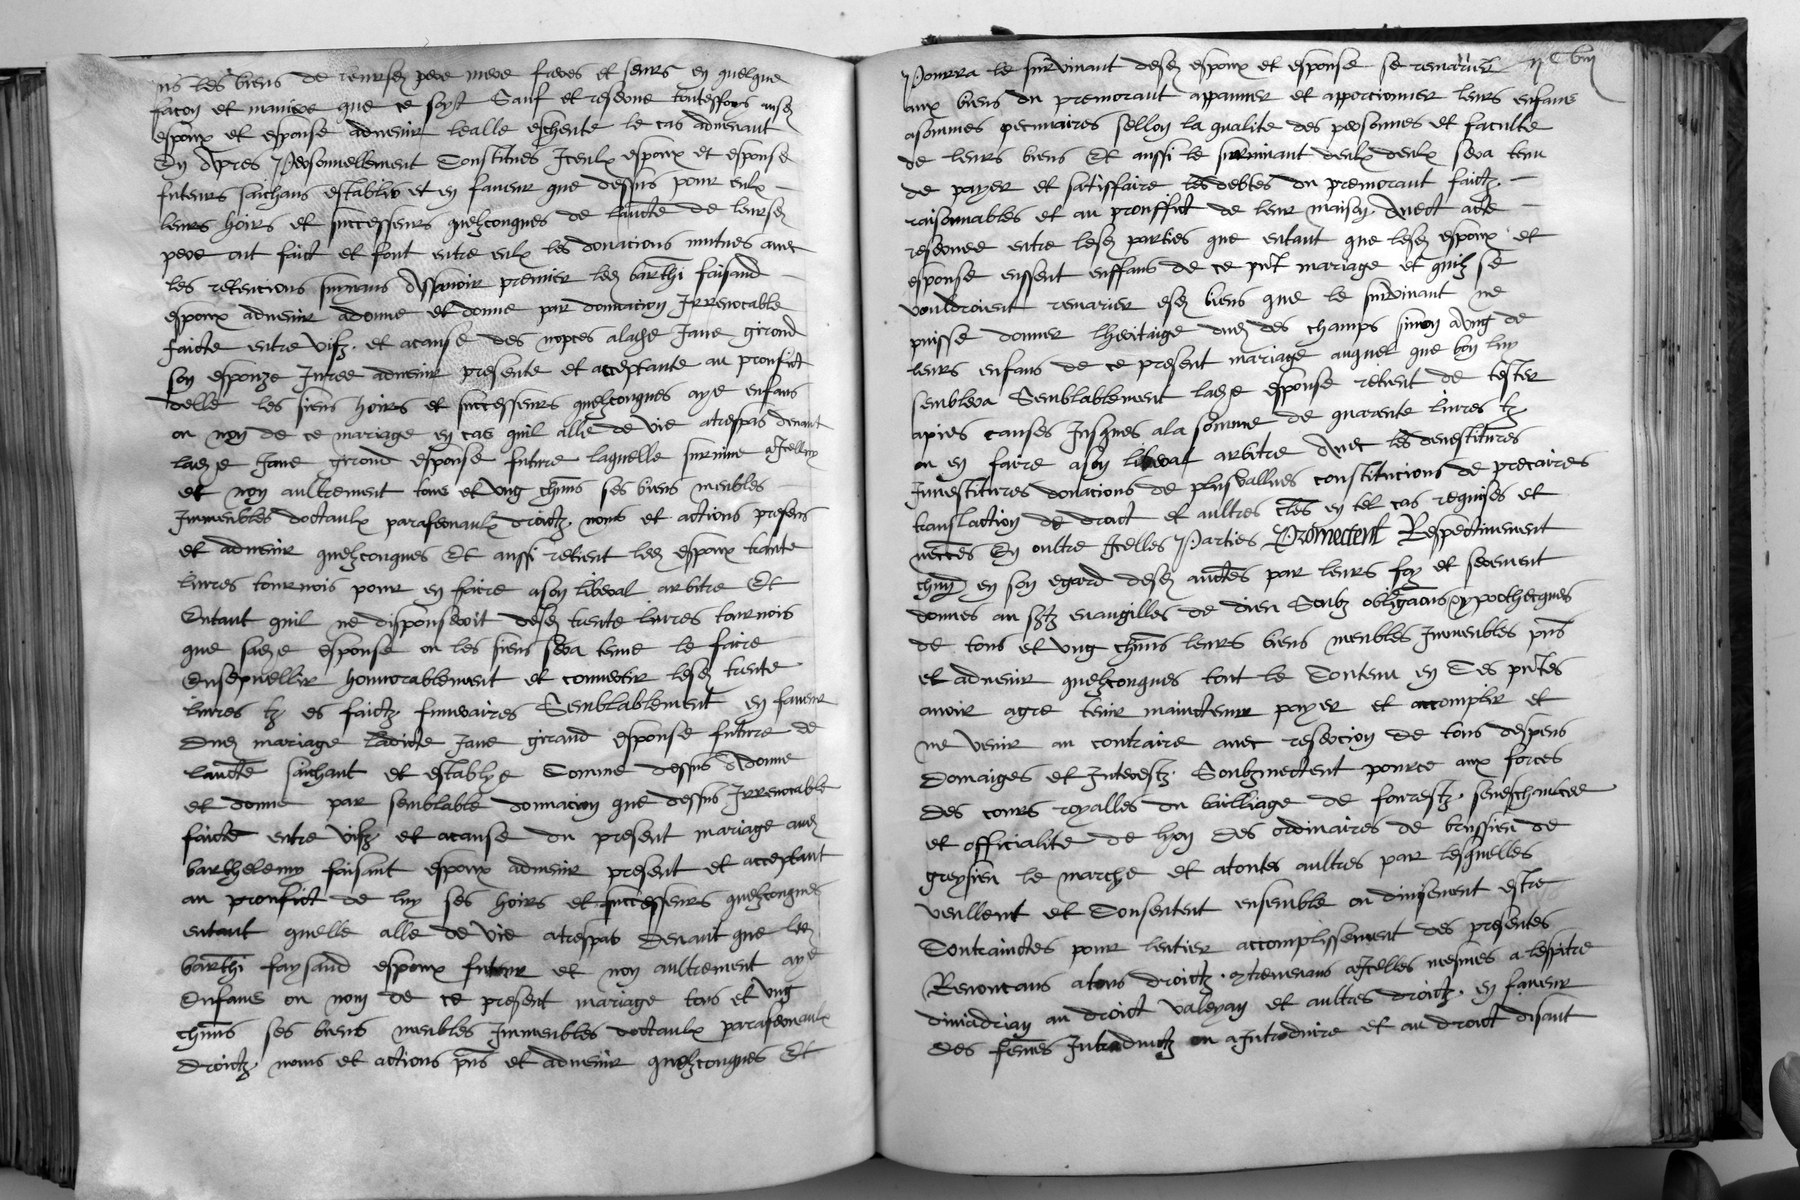 ns les biens de leursd pere mere freres et seurs en quelque
facon et maniere que ce soyt Sauf et reserve toutesfoys ausd
espoux et espouse advenir lealle escheute le cas advenant
En Apres Personnellement Constitues Iceulx espoux et espouse
futeurs saichans establis et en faveur que dessus pour eulx
leurs hoirs et successeurs quelzconques de laucte de leursd
pere ont faict et font entre eulx les donacions mutues avec
les retencions suyvans Assavoir premier led barthi faisand
espoux advenir a donne et donne par donnacion Irrevocable
faicte entre vifz et a cause des nopces a lad Jane girond
son espouze Juree advenir presente et acceptante au prouffict
delle les siens hoirs et successeurs quelzconques aye enfans
ou non de ce mariage en cas quil alle de vie a trespas devant
lad Jane girond espouse future laquelle survive a Icelluy
et non aultrement tous et ung chms ses biens meubles
Immeubles doctaulx parafernaulx droictz noms et actions presens
et advenir quelzconques Et aussi retient led espoux trante
livres tournois pour en faire a son liberal arbitre Et
Entant quil ne disponseroit desd trente livres tournois
que sad espouse ou les siens sera tenue le faire
Ensepvellir honnorablement et convertir lesd trente
livres tz es faictz funeraires Semblablement en faveur
dud mariage ladicte Jane girand espouse future de
laucte saichant et establye Comme dessus A donne
et donne par semblable donnacion que dessus Irrevocable
faicte entre vifz et a cause du present mariage aud
barthelemy faisant espoux advenir present et acceptant
au prouffict de luy ses hoirs et successeurs quelzconques
entant quelle alle de vie a trespas devant que led
barthi faysand espoux futeur et non aultrement aye
Enfans ou non de ce present mariage tous et ung
chms ses biens meubles Immeubles doctaulx parafernaulx
droictz noms et actions pns et advenir quelzconques Et
Pourra le survivant desd espoux et espouse se remarier
aux biens du premorant appanner et apporcionner leurs enfans
a sommes pecuniaires sellon la qualite des personnes et faculte
de leurs biens Et aussi le survivant deulx deulx sera tenu
de payer et satisfaire les debtes du premorant faictz
raisonnables et au prouffict de leur maison Avect acte
reservee entre lesd parties que entant que lesd espoux et
espouse eussent enffans de ce pnt mariage et quilz se
vouldroient remarier esd biens que le survivant ne
puisse donner lheritaige dud des champs sinon a ung de
leurs enfans de ce present mariage auquel que bon luy
semblera Semblablement lad espouse retient de tester
a pies causes Jusques a la somme de quarente livres tz
ou en faire a son liberal arbitre Avec les devestitures
Investitures donacions de plus vallues constitucions de precaires
translaction de droict et aultres cles en tel cas requises et
necces En oultre Icelles Parties Promectent Respectivement
chun en son egard desd auctes par leurs foy et serement
donnes au sztz evangilles de dieu Soubz obligaons ypothecques
de tous et ung chms leurs biens meubles Immeubles pns
et advenir quelzconques tout le Contenu en Ces pntes
avoir agre tenir mainctenir payer et accomplir et
ne venir au contraire avec reffection de tous despens
Domaiges et Interestz Soubzmectent pource aux forces
des cours royalles du bailliage de forrestz seneschaulcee
et officialite de lyon des ordinaires de bussieu de
greysieu le marche et a toutes aultres par lesquelles
veullent et Consentent ensemble ou divisement estre
Contrainctes pour lentier accomplissement des presentes
Renoncans a tous droictz contrevenans a Icelles mesmes a lespitre
diviadrian au droict valeyan et aultres droictz en faveur
des femes Introduictz ou a Introduire et au droict disant